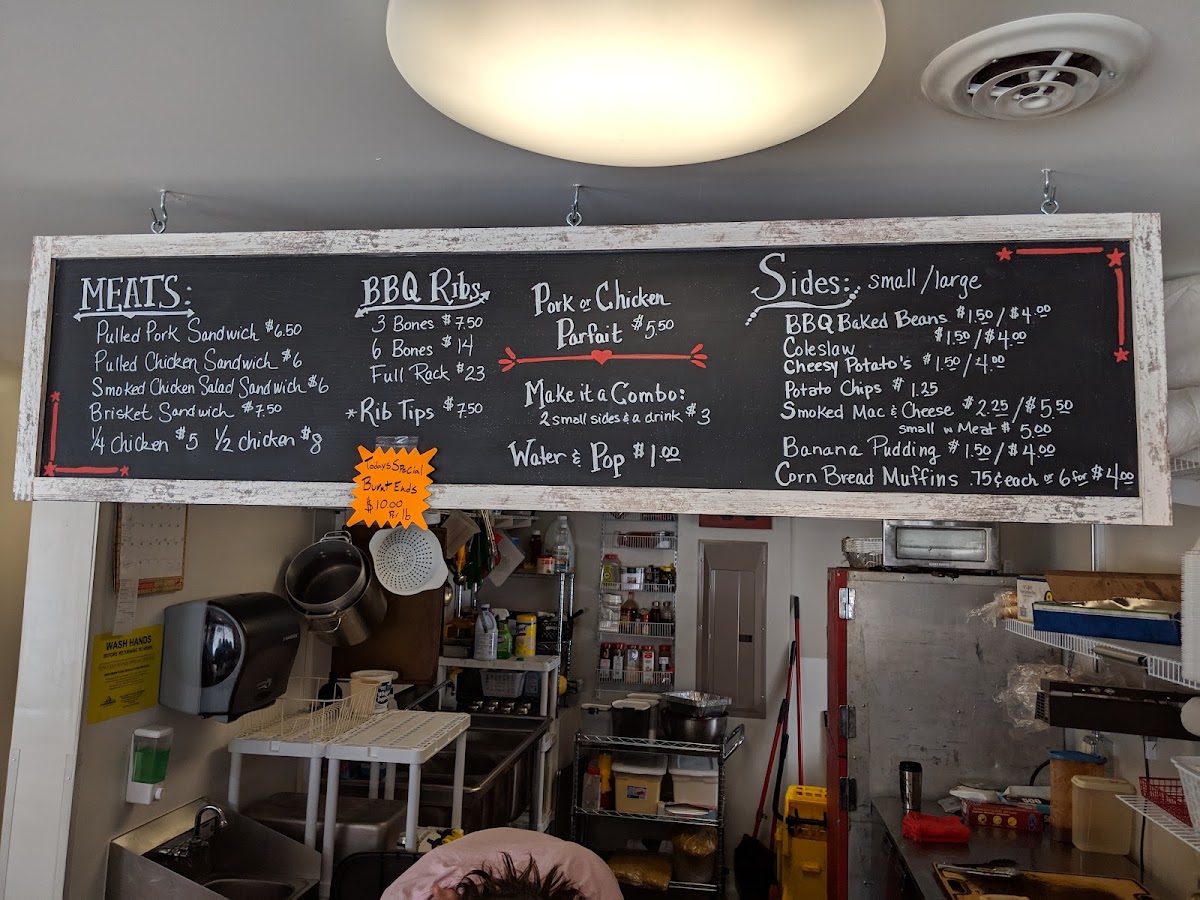 MEATS:
Pulled Pork Sandwich $6.50
Pulled Chicken Sandwich $6
Smoked Chicken Salad Sandwich $6
Brisket Sandwich $7.50
1/4 chicken $5 1/2 chicken $8
BBQ Ribs
3 Bones $7.50
6 Bones $14
Full Rack $23
*Rib Tips $7.50
Today's Special
Burnt Ends
$10.00
Per lb
Pork or Chicken
Parfait $5.50
Make it a Combo:
2 small sides & a drink $3
Water & Pop $1.00
Sides: small/large
BBQ Baked Beans $1.50/$4.00
Coleslaw $1.50/$4.00
Cheesy Potato's $1.50/4.00
Potato Chips $1.25
Smoked Mac & Cheese $2.25/$5.50
small w Meat $5.00
Banana Pudding $1.50/$4.00
Corn Bread Muffins .75¢ each or 6 for $4.00
WASH HANDS